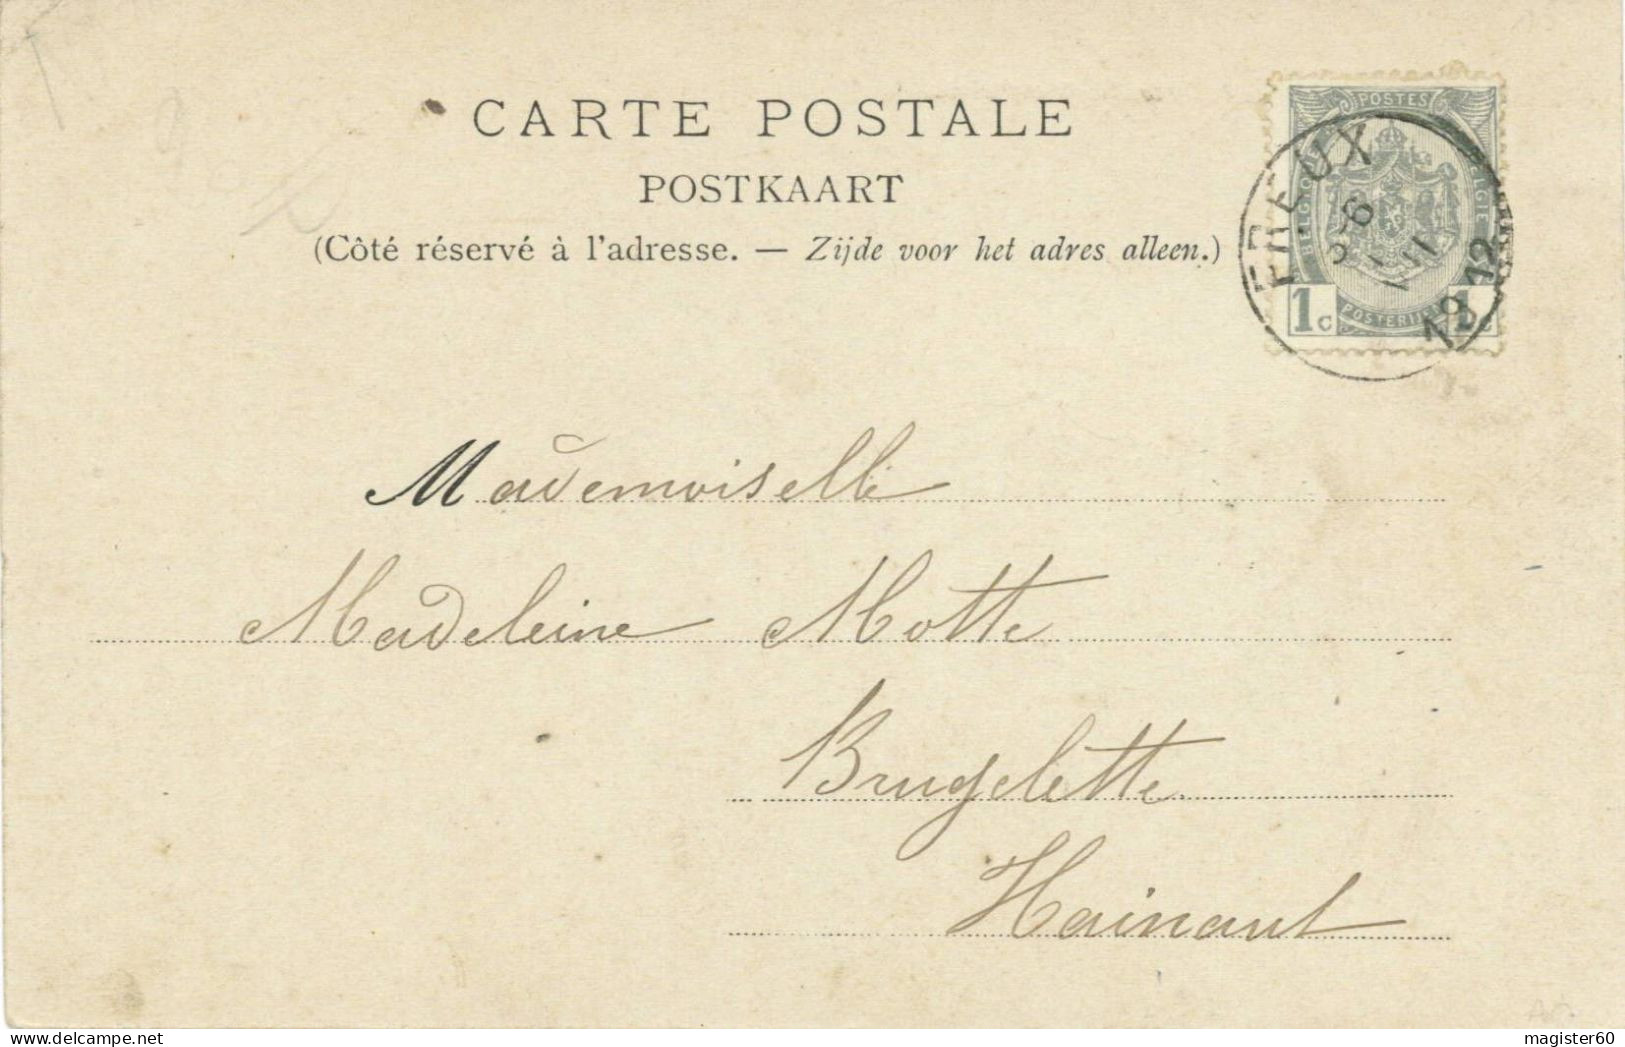 CARTE POSTALE
POSTKAART
(Côté réservé à l'adresse. — Zijde voor het adres alleen.)
POSTES
BELGIQUE
BELGIE
1c
POSTERIJEN
1c
12
Mademoiselle
Madeleine Motte
Brugelette
Hainaut
magister60